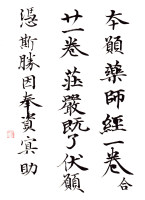 本願藥師經一卷合
廿一卷莊嚴既了伏願
憑斯勝因奉資冥助